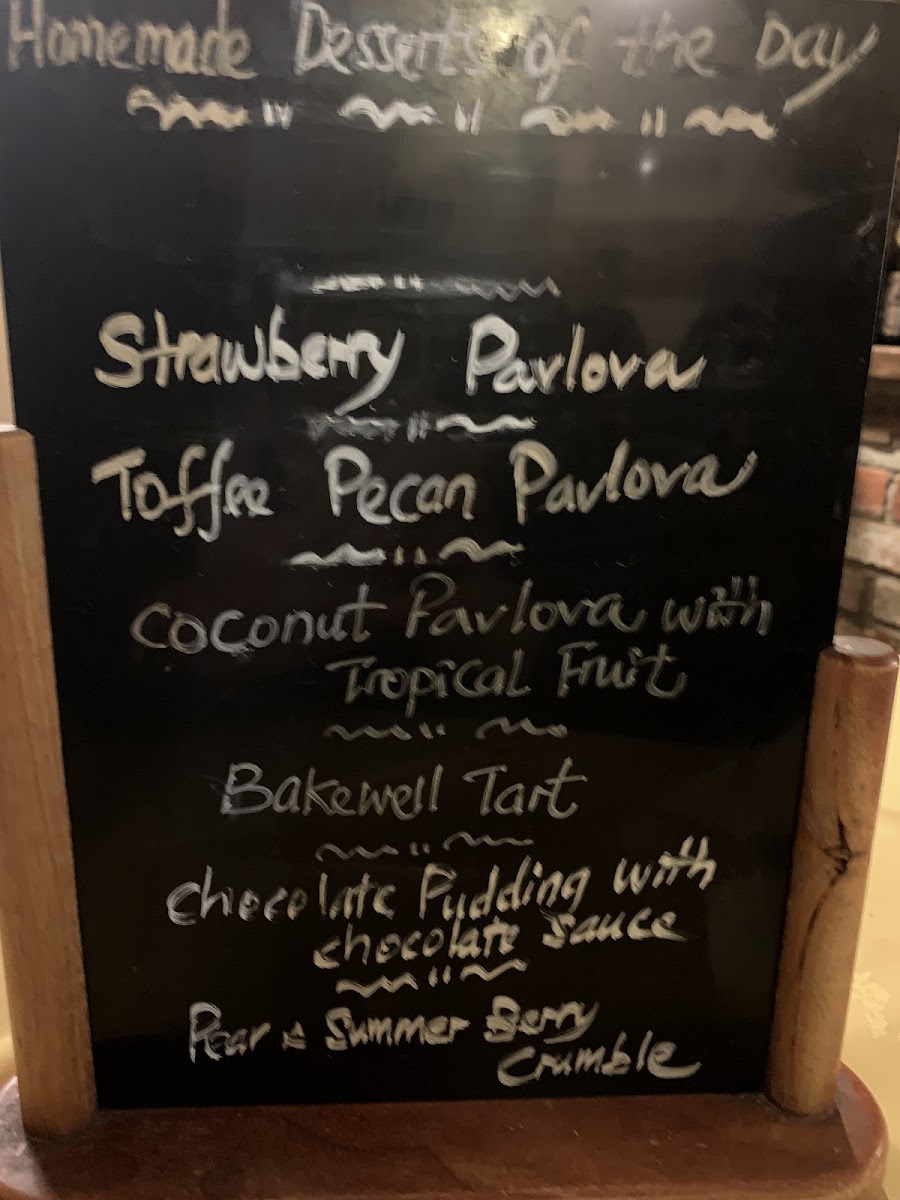 Homemade Desserts of the Day
Strawberry Pavlova
Toffee Pecan Pavlova
Coconut Pavlova with
Tropical Fruit
Bakewell Tart
Chocolate Pudding with
chocolate sauce
Pear & Summer Berry
Crumble